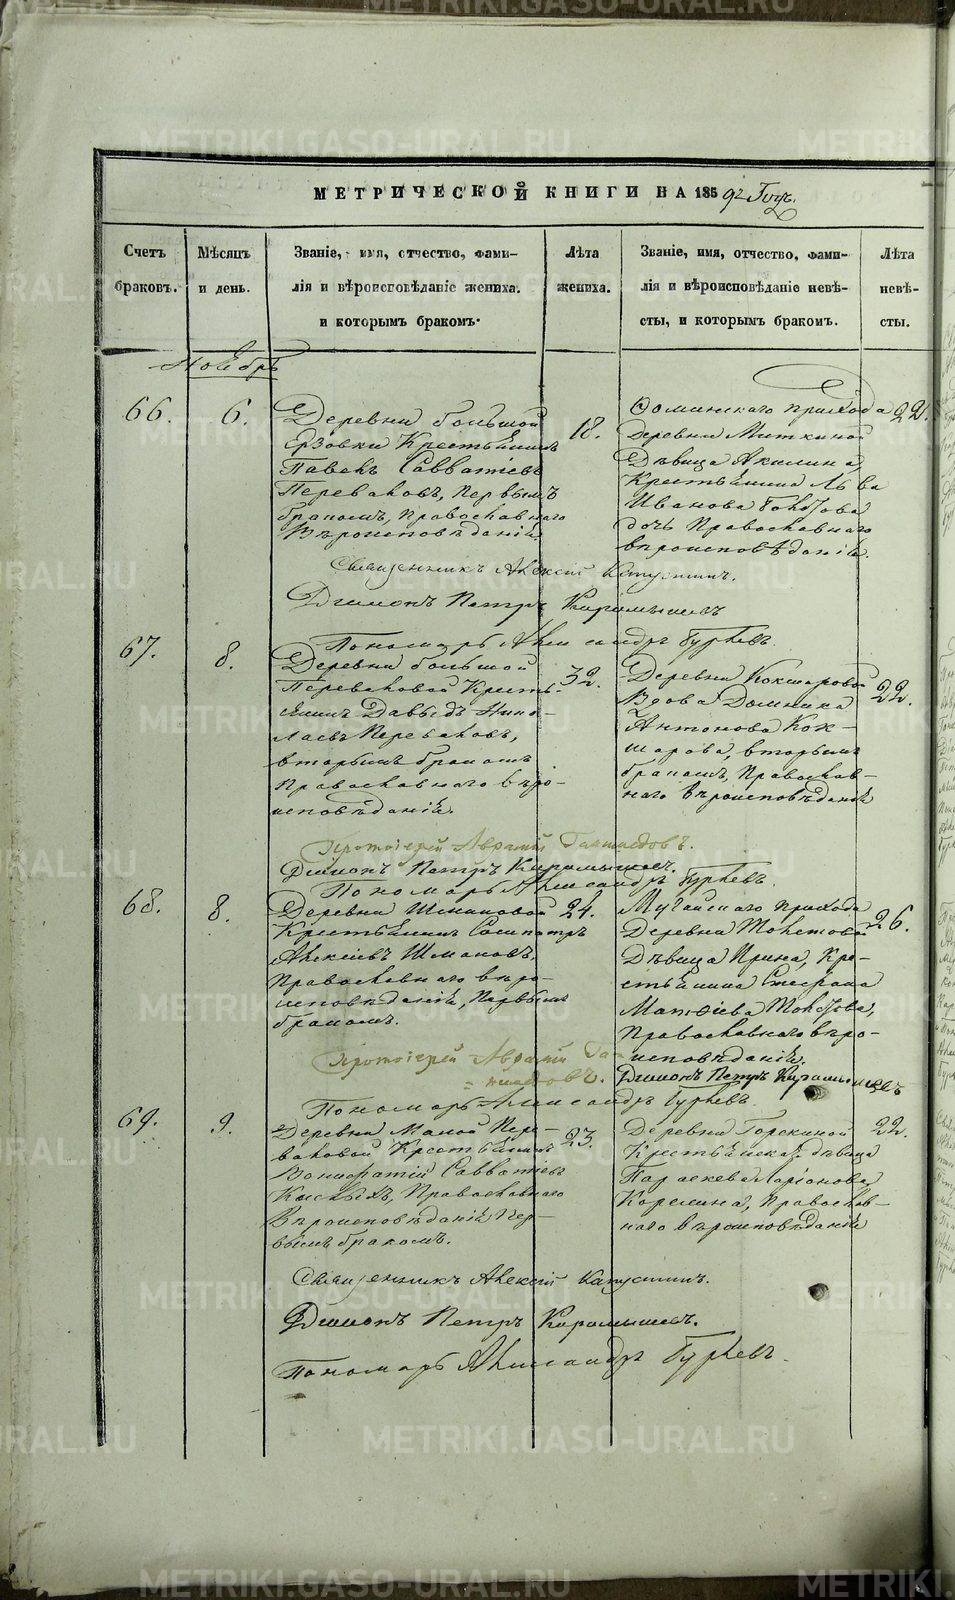 METRIKI.GASO-URAL.RU
МЕТРИЧЕСКОЙ КНИГИ НА 1859й Годъ.
Счетъ браковъ.
Мѣсяцъ и день.
Званіе, имя, отчество, фами-
лія и вѣроисповѣданіе жениха.
и которымъ бракомъ.
Лѣта жениха.
Званіе, имя, отчество, фами-
лія и вѣроисповѣданіе невѣ-
сты, и которымъ бракомъ.
Лѣта невѣ-
сты.
Ноябрь
66.
6.
Деревни большой
Ерзовки Крестьянинъ
Павелъ Савватіевъ
Переваловъ, первымъ
бракомъ, Православнаго
Вѣроисповѣданія
18.
прихода
Деревни Миткиной
Дѣвица Акилина,
Крестьянина Льва
Иванова
дочь Православнаго
вѣроисповѣданія.
22.
Священникъ Алексій Капустинъ.
Діаконъ Петръ Карамышевъ
Пономарь Александръ Гурьевъ.
67.
8.
Деревни большой
Переваловой Кресть-
янинъ Давыдъ Нико-
лаевъ Переваловъ,
вторымъ бракомъ
Православнаго вѣро-
исповѣданія.
32.
Деревни Кокшаровой
Вдова Домника
Антонова Кок-
шарова, вторымъ
бракомъ, Православ-
наго вѣроисповѣданія
22.
Протоіерей Аврамій
Діаконъ Петръ Карамышевъ.
Пономарь Александръ Гурьевъ.
68.
8.
Деревни
Крестьянинъ Сосипатръ
Алексіевъ Шмаковъ,
Православнаго вѣро-
исповѣданія, Первымъ
бракомъ.
24.
Мугайскаго прихода
Деревни
Дѣвица Ирина, Кре-
стьянина Стефана
Матѳіева
Православнаго вѣро-
исповѣданія.
26.
Протоіерей Аврамій
Діаконъ Петръ Карамышевъ
Пономарь Александръ Гурьевъ.
69.
9.
Деревни Малой Пере-
валовой Крестьянинъ
Вонифатій Савватіевъ
Православнаго
Вѣроисповѣданія Пер-
вымъ бракомъ.
23
Деревни Горскиной
Крестьянская дѣвица
Параскева Ларіонова
Корелина, Православ-
наго вѣроисповѣданія
22.
Священникъ Алексій Капустинъ.
Діаконъ Петръ Карамышевъ.
Пономарь Александръ Гурьевъ.